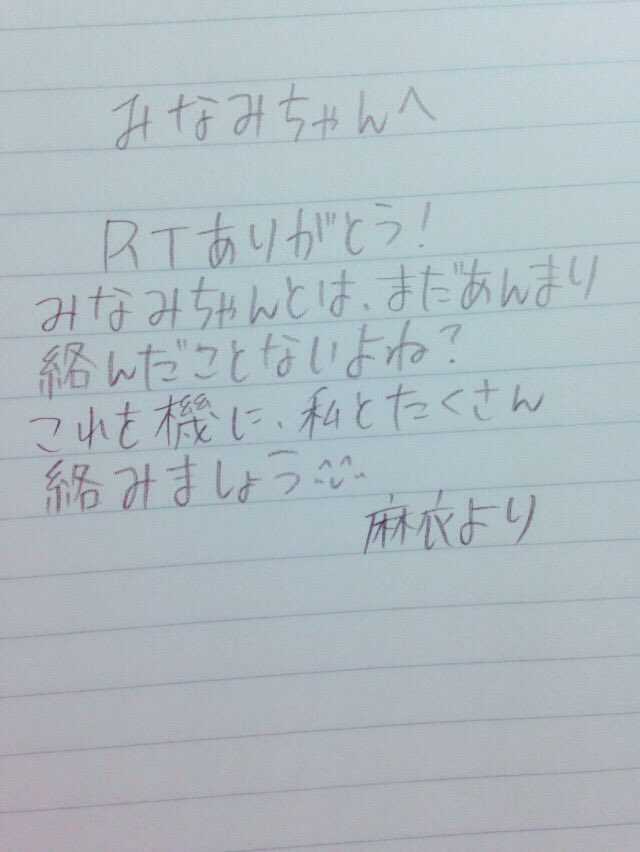 みなみちゃんへ
RTありがとう!
みなみちゃんとは、まだあんまり
絡んだことないよね?
これを機に、私とたくさん
絡みましょう^^
麻衣より